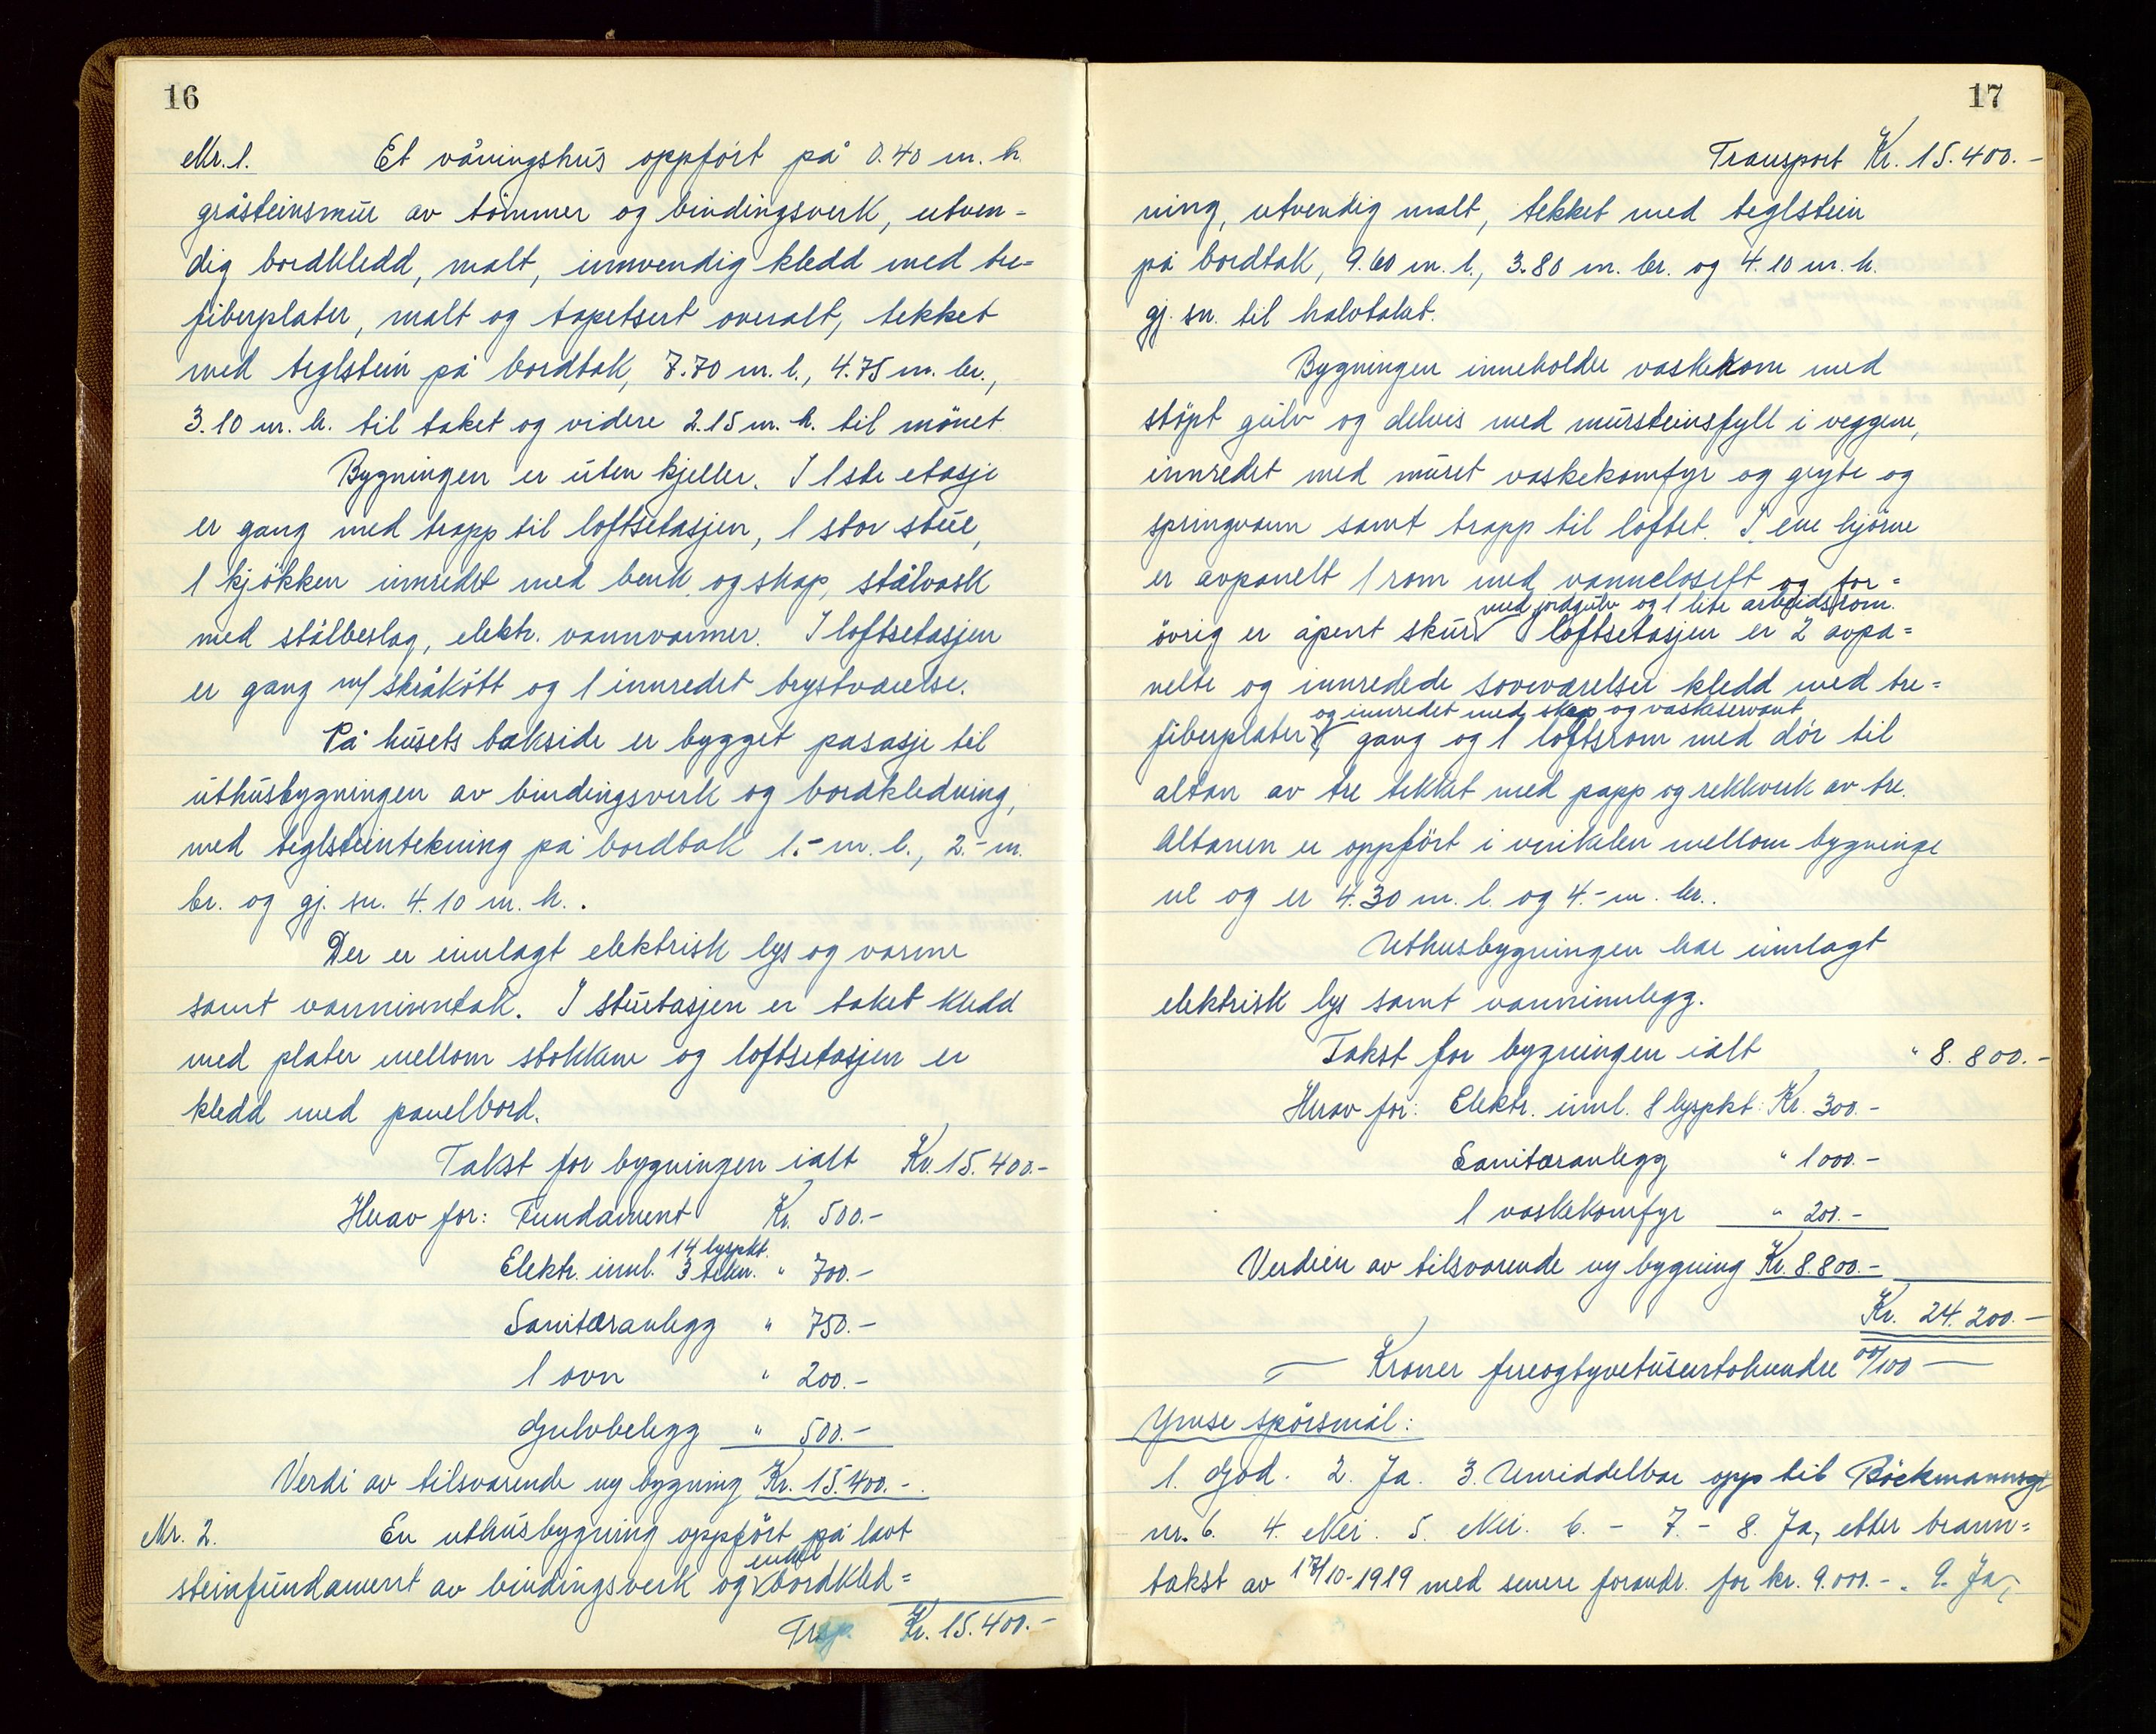 16
Nr. 1. Et våningshus oppført på 0.40 m. h.
gråsteinsmur av tømmer og bindingsverk, utven=
dig bordkledd, malt, innvendig kledd med tre=
fiberplater, malt og tapetsert overalt, tekket
med teglstein på bordtak, 7.70 m. l., 4.75 m. br.,
3.10 m. h. til taket og videre 2.15 m. h. til mønet
Bygningen er uten kjeller. I 1ste etasje
er gang med trapp til loftsetasjen, 1 stor stue,
1 kjøkken innredet med benk og skap, stålvask
med stålbeslag, elektr. vannvarmer. I loftsetasjen
er gang m/ skråkött og 1 innredet brystværelse.
På husets bakside er bygget passasje til
uthusbygningen av bindingsverk og bordkledning,
med teglsteintekning på bordtak 1.- m. l., 2.- m.
br. og gj. sn. 4.10 m. h..
Der er innlagt elektrisk lys og varme
samt vanninntak. I stuetasjen er taket kledd
med plater mellom stokkene og loftsetasjen er
kledd med panelbord.
Takst for bygningen ialt Kr. 15.400.-
Herav for: Fundament Kr. 500.-
14 lyspkt.
Elektr. innl. 3 tekn. " 700.-
Sanitæranlegg " 750.-
1 ovn " 200.-
Gulvbelegg " 500.-
Verdi av tilsvarende ny bygning Kr. 15.400.-
Nr. 2. En uthusbygning oppført på lavt
enkel
steinfundament av bindingsverk og bordkled=
Trsp. Kr. 15.400.-
17
Transport Kr. 15.400.-
ning, utvendig malt, tekket med teglstein
på bordtak, 9.60 m. l., 3.80 m. br. og 4.10 m. h.
gj. sn. til halvtaket.
Bygningen inneholder vaskerom med
støpt gulv og delvis med mursteinsfyll i veggene,
innredet med muret vaskekomfyr og gryte og
springvann samt trapp til loftet. I ene hjørne
er avpanelt 1 rom med vanncloset og for=
med jordgulv og 1 lite arbeidsrom.
øvrig er åpent skur I loftsetasjen er 2 avpa=
nelte og innredede soveværelser kledd med tre=
og innredet med skap og vaskeservant
fiberplater, gang og 1 loftsrom med dør til
altan av tre tekket med papp og rekkverk av tre.
Altanen er oppført i vinkelen mellom bygninge
ne og er 4.30 m. l. og 4.- m. br..
Uthusbygningen har innlagt
elektrisk lys samt vanninnlegg.
Takst for bygningen ialt " 8.800.-
Herav for: Elektr. innl. 8 lyspkt: Kr. 300.-
Sanitæranlegg " 1000.-
1 vaskekomfyr " 200.-
Verdien av tilsvarende ny bygning Kr. 8.800.-
Kr. 24.200.-
Kroner fireogtyvetusentohundre 00/100
Ymse spørsmål:
1. God. 2. Ja. 3. Umiddelbar opp til Böckmannsgt
nr. 6. 4. Nei. 5. Nei. 6. - 7. - 8. Ja, etter brann=
takst av 17/10-1919 med senere forandr. for kr. 9.000.-. 9. Ja,